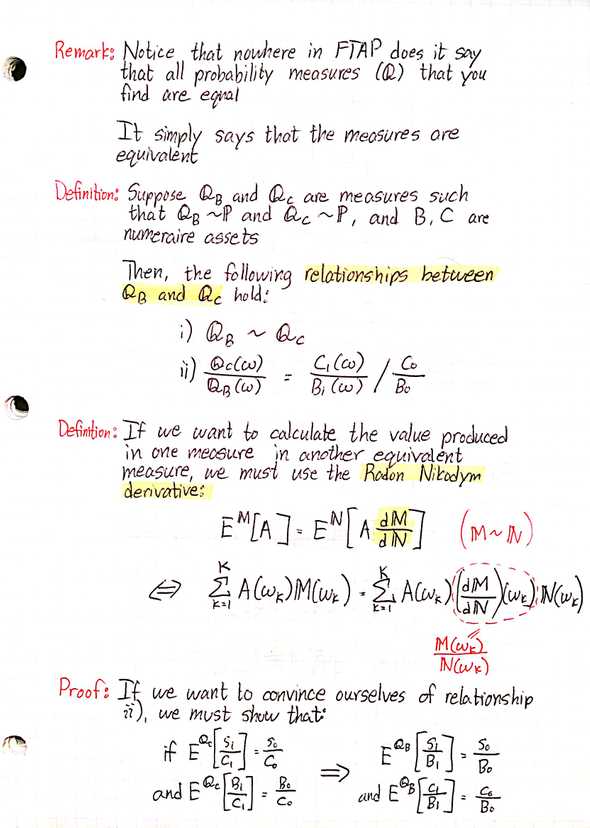 Remark: Notice that nowhere in FTAP does it say
that all probability measures (Q) that you
find are equal
It simply says that the measures are
equivalent
Definition: Suppose Q_B and Q_C are measures such
that Q_B ~ P and Q_C ~ P, and B, C are
numeraire assets
Then, the following relationships between
Q_B and Q_C hold:
i) Q_B ~ Q_C
ii) Q_C(ω)/Q_B(ω) = C_1(ω)/B_1(ω) / C_0/B_0
Definition: If we want to calculate the value produced
in one measure in another equivalent
measure, we must use the Radon Nikodym
derivative:
E^M[A] = E^N[A dM/dN] (M~N)
⇔ Σ_{k=1}^K A(ω_k)M(ω_k) = Σ_{k=1}^K A(ω_k)(dM/dN)(ω_k)N(ω_k)
M(ω_k)/N(ω_k)
Proof: If we want to convince ourselves of relationship
ii), we must show that:
if E^{Q_C}[S_1/C_1] = S_0/C_0 ⇒ E^{Q_B}[S_1/B_1] = S_0/B_0
and E^{Q_C}[B_1/C_1] = B_0/C_0 and E^{Q_B}[C_1/B_1] = C_0/B_0